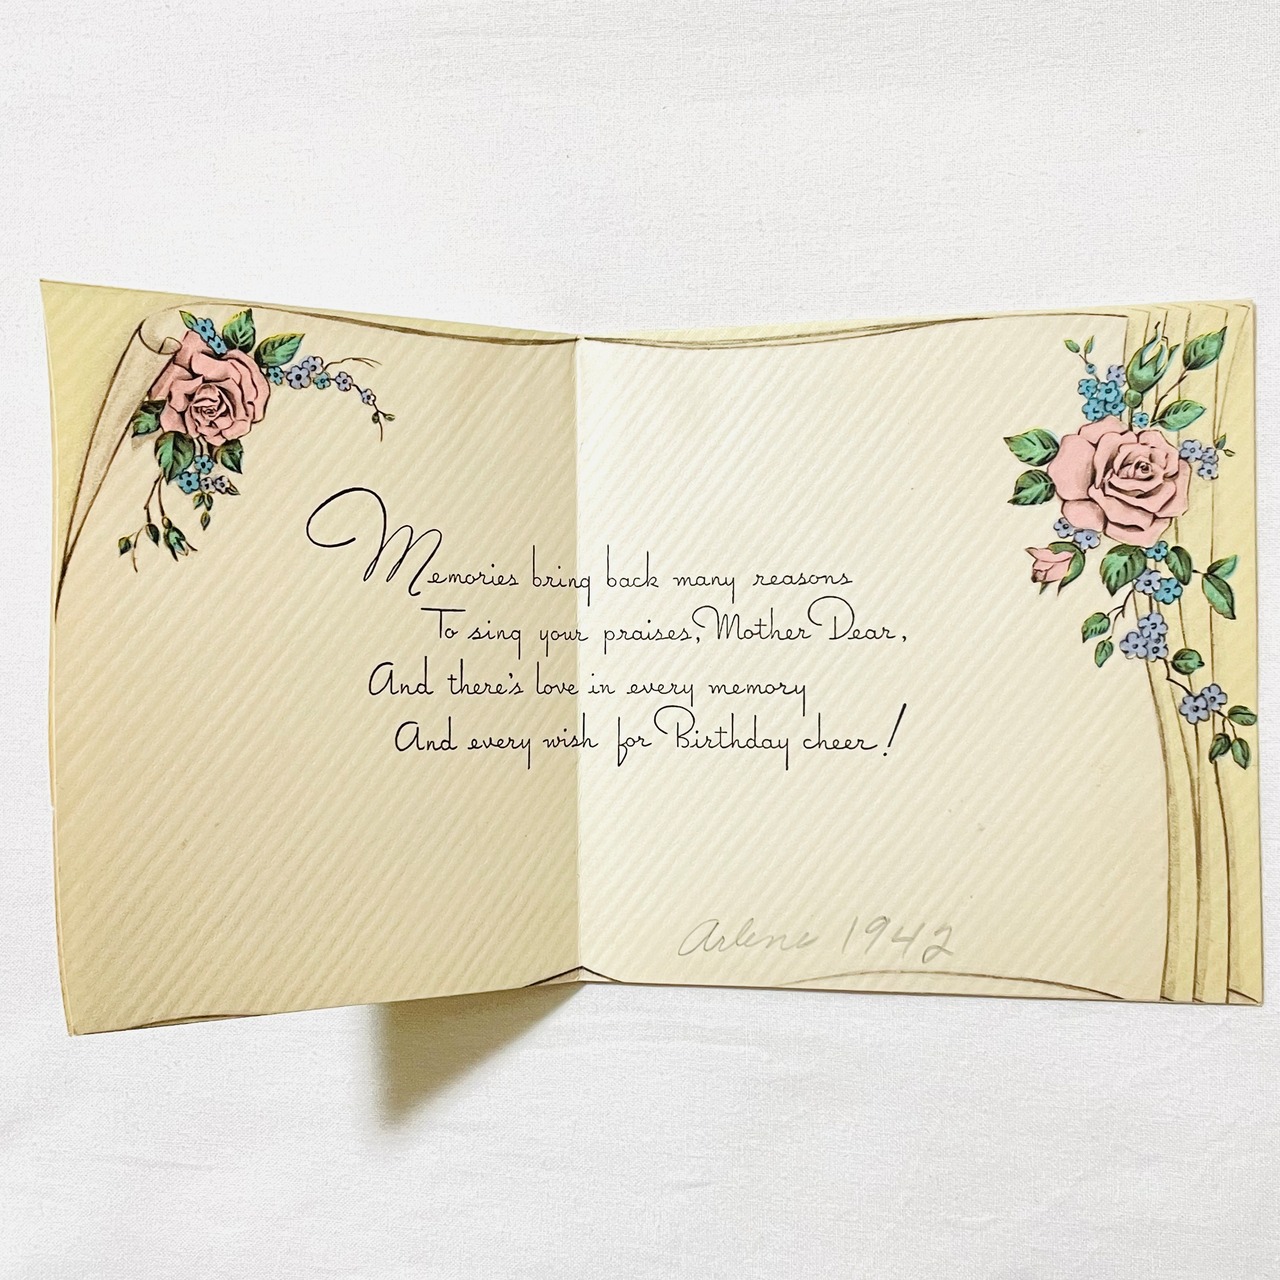 Memories bring back many reasons
To sing your praises, Mother Dear,
And there's love in every memory
And every wish for Birthday cheer!
Arlene 1942